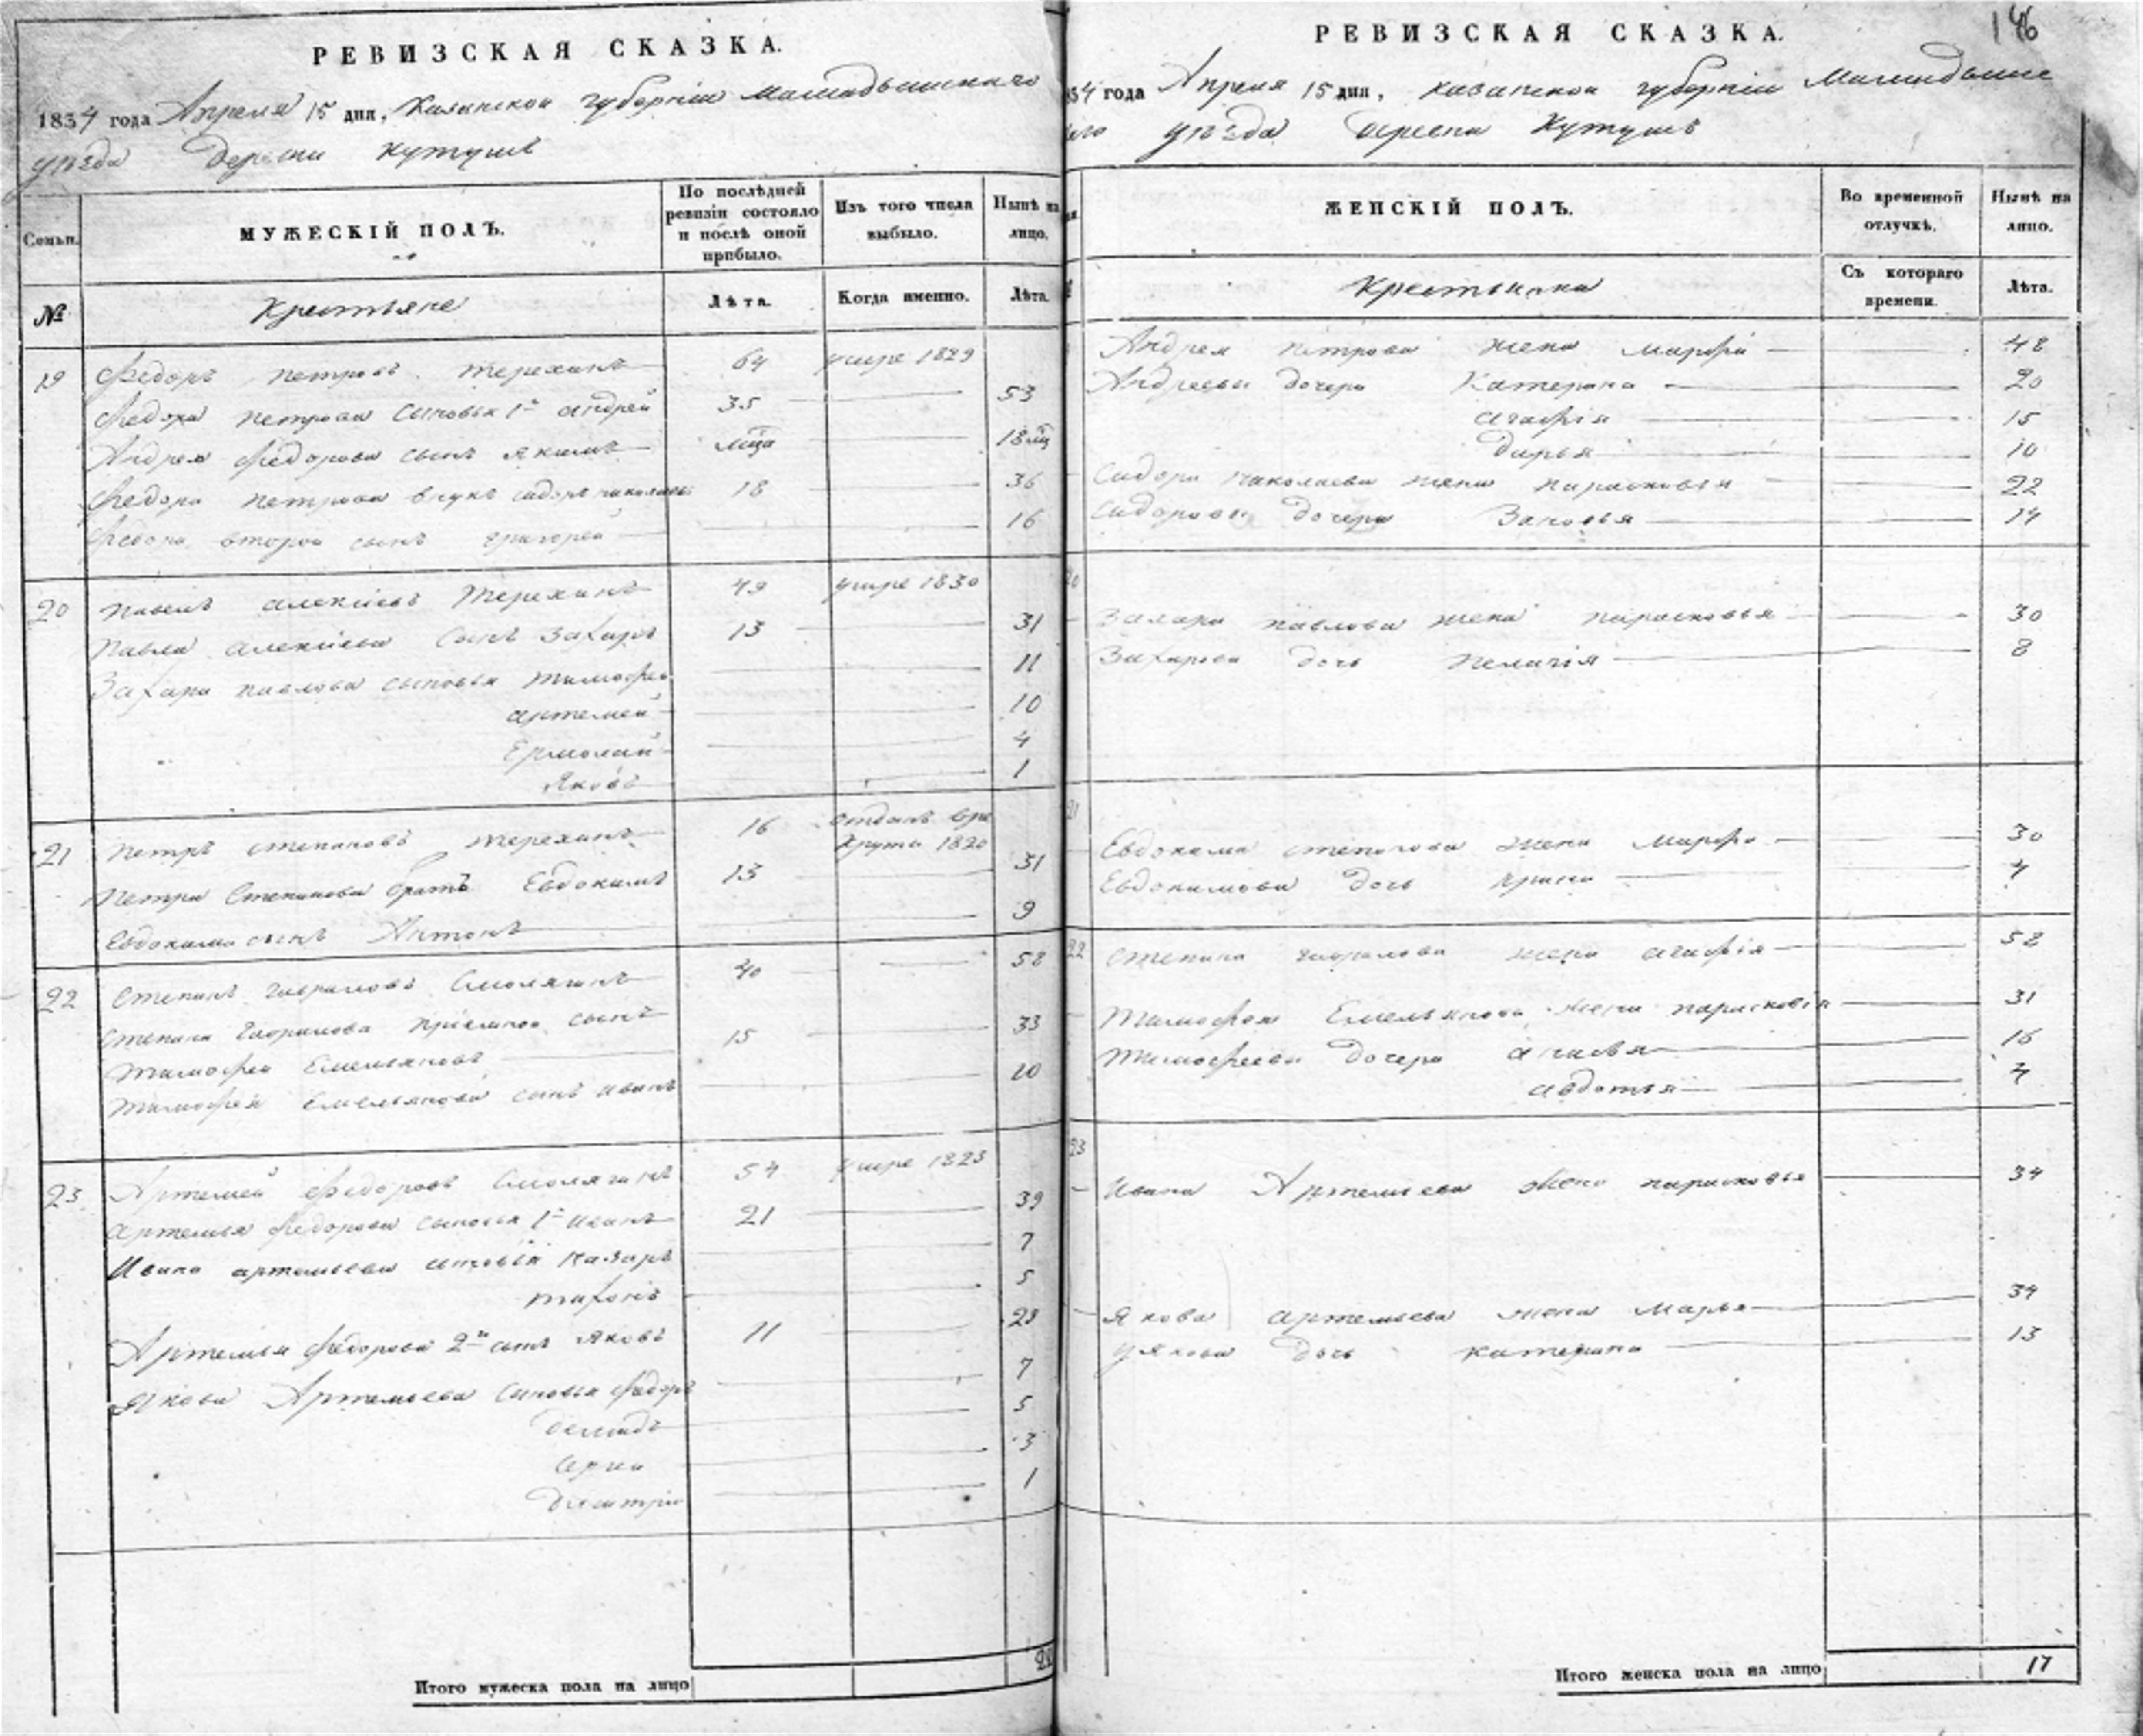 РЕВИЗСКАЯ СКАЗКА.
1834 года Апреля 15 дня, Казанской губернiи
уѣзда Деревни Кутушъ
Семьи.
МУЖЕСКIЙ ПОЛЪ.
По послѣдней ревизiи состояло и послѣ оной прибыло.
Изъ того числа выбыло.
Нынѣ на лицо.
№
Крестьяне
Лѣта.
Когда именно.
Лѣта.
19 Федоръ Петровъ Терехинъ 64 умре 1829
Федора Петрова сыновья 1й Андрей 35 53
Андрея Федорова сынъ Якимъ мца 18
Федора Петрова внукъ Сидоръ Николаевъ 18 36
Федора второй сынъ Григорей 16
20 Павелъ Алексiевъ Терехинъ 49 умре 1830
Павла Алексiева сынъ Захаръ 13 31
Захара Павлова сыновья Тимофей 11
Артемей 10
Ермолай 4
Яковъ 1
21 Петръ Степановъ Терехинъ 16 отданъ в ре
круты 1820
Петра Степанова братъ Евдокимъ 13 31
Евдокима сынъ Антонъ 9
22 Степанъ Гавриловъ Смолягинъ 40 58
Степана Гаврилова прiемной сынъ
Тимофей Емельяновъ 15 33
Тимофея Емельянова сынъ Иванъ 10
23 Артемей Федоровъ Смолягинъ 54 умре 1823
Артемья Федорова сыновья 1й Иванъ 21 39
Ивана Артемьева сыновья Назаръ 7
Тихонъ 5
Артемья Федорова 2й сынъ Яковъ 11 29
Якова Артемьева сыновья Федоръ 7
Демидъ 5
3
Дмитрiй 1
Итого мужеска пола на лицо
146
РЕВИЗСКАЯ СКАЗКА.
34 года Апреля 15 дня, Казанской губернiи
уѣзда Деревни Кутушъ
ЖЕНСКIЙ ПОЛЪ.
Во временной отлучкѣ.
Нынѣ на лицо.
Крестьянка
Съ котораго времени.
Лѣта.
Андрея Петрова жена Марфа 48
Андреевы дочери Катерина 20
Агафiя 15
Дарья 10
Сидора Николаева жена Парасковья 22
Сидоровы дочери 14
20
Захара Павлова жена Парасковья 30
Захарова дочь Пелагiя 8
21
Евдокима Степанова жена Марфа 30
Евдокимова дочь Ирина 4
22 Степана Гаврилова жена Агафiя 58
Тимофея Емельянова жена Парасковiя 31
Тимофеевы дочери 16
Авдотья 4
23
Ивана Артемьева жена Парасковья 34
Якова Артемьева жена Марья 34
у Якова дочь Катерина 13
Итого женска пола на лицо 17